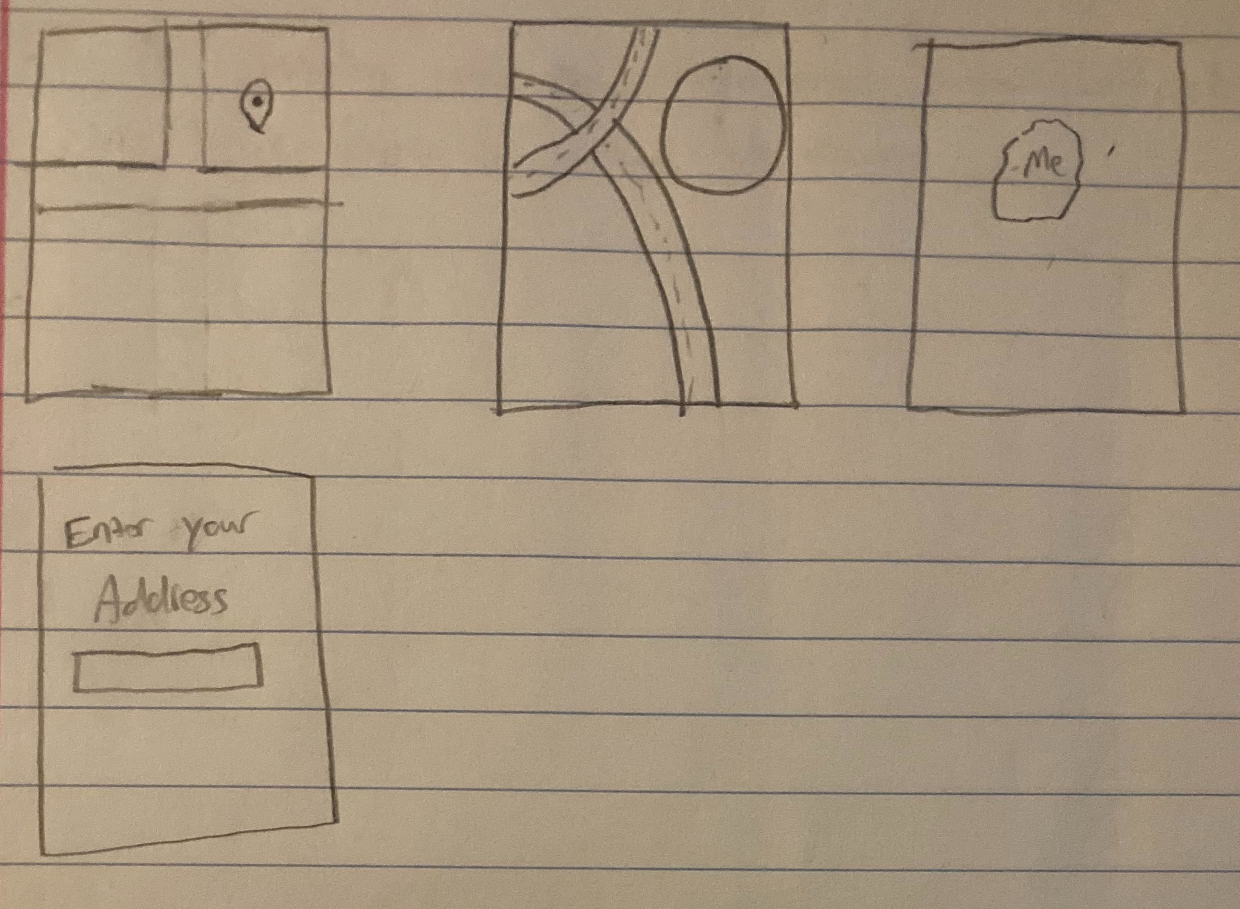 Me
Enter your
Address